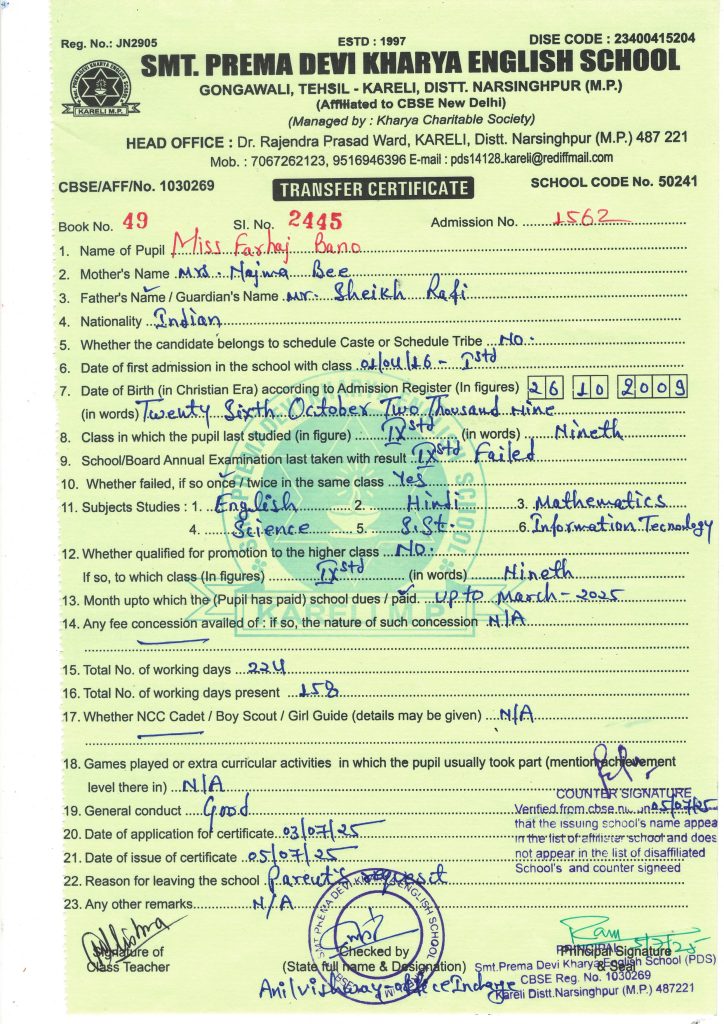 Reg. No.: JN2905 ESTD : 1997 DISE CODE : 23400415204
SMT. PREMA DEVI KHARYA ENGLISH SCHOOL
KARELI M.P.
GONGAWALI, TEHSIL - KARELI, DISTT. NARSINGHPUR (M.P.)
(Affiliated to CBSE New Delhi)
(Managed by : Kharya Charitable Society)
HEAD OFFICE : Dr. Rajendra Prasad Ward, KARELI, Distt. Narsinghpur (M.P.) 487 221
Mob. : 7067262123, 9516946396 E-mail : pds14128.kareli@rediffmail.com
CBSE/AFF/No. 1030269 TRANSFER CERTIFICATE SCHOOL CODE No. 50241
Book No. 49 Sl. No. 2445 Admission No. 1562
1. Name of Pupil Miss Farhaj Bano
2. Mother's Name Mrs. Najma Bee
3. Father's Name / Guardian's Name Mr. Sheikh Rafi
4. Nationality Indian
5. Whether the candidate belongs to schedule Caste or Schedule Tribe NO.
6. Date of first admission in the school with class 01/04/16 - Istd
7. Date of Birth (in Christian Era) according to Admission Register (In figures) 26 10 2009
(in words) Twenty Sixth October Two Thousand Nine
8. Class in which the pupil last studied (in figure) IXstd (in words) Nineth
9. School/Board Annual Examination last taken with result IXstd Failed
10. Whether failed, if so once / twice in the same class Yes
11. Subjects Studies : 1. English 2. Hindi 3. Mathematics
4. Science 5. S.St. 6. Information Tecnology
12. Whether qualified for promotion to the higher class NO.
If so, to which class (In figures) IXstd (in words) Nineth
13. Month upto which the (Pupil has paid) school dues / paid. up to March - 2025
14. Any fee concession availed of : if so, the nature of such concession N/A
15. Total No. of working days 224
16. Total No. of working days present 158
17. Whether NCC Cadet / Boy Scout / Girl Guide (details may be given) N/A
18. Games played or extra curricular activities in which the pupil usually took part (mention achievement
level there in) N/A
COUNTER SIGNATURE
19. General conduct Good
Verified from cbse on 05/07/25
that the issuing school's name appea
20. Date of application for certificate 03/07/25
in the list of affilister school and does
21. Date of issue of certificate 05/07/25
not appear in the list of disaffiliated
School's and counter signeed
22. Reason for leaving the school Parent's request
23. Any other remarks N/A
SMT. PREMA DEVI KHARYA ENGLISH SCHOOL
Signature of
Class Teacher
Checked by
(State full name & Designation)
Ram 5/7/25
PRINCIPAL
Principal Signature
& Seal
Smt.Prema Devi Kharya English School (PDS)
CBSE Reg. No. 1030269
Kareli Distt.Narsinghpur (M.P.) 487221